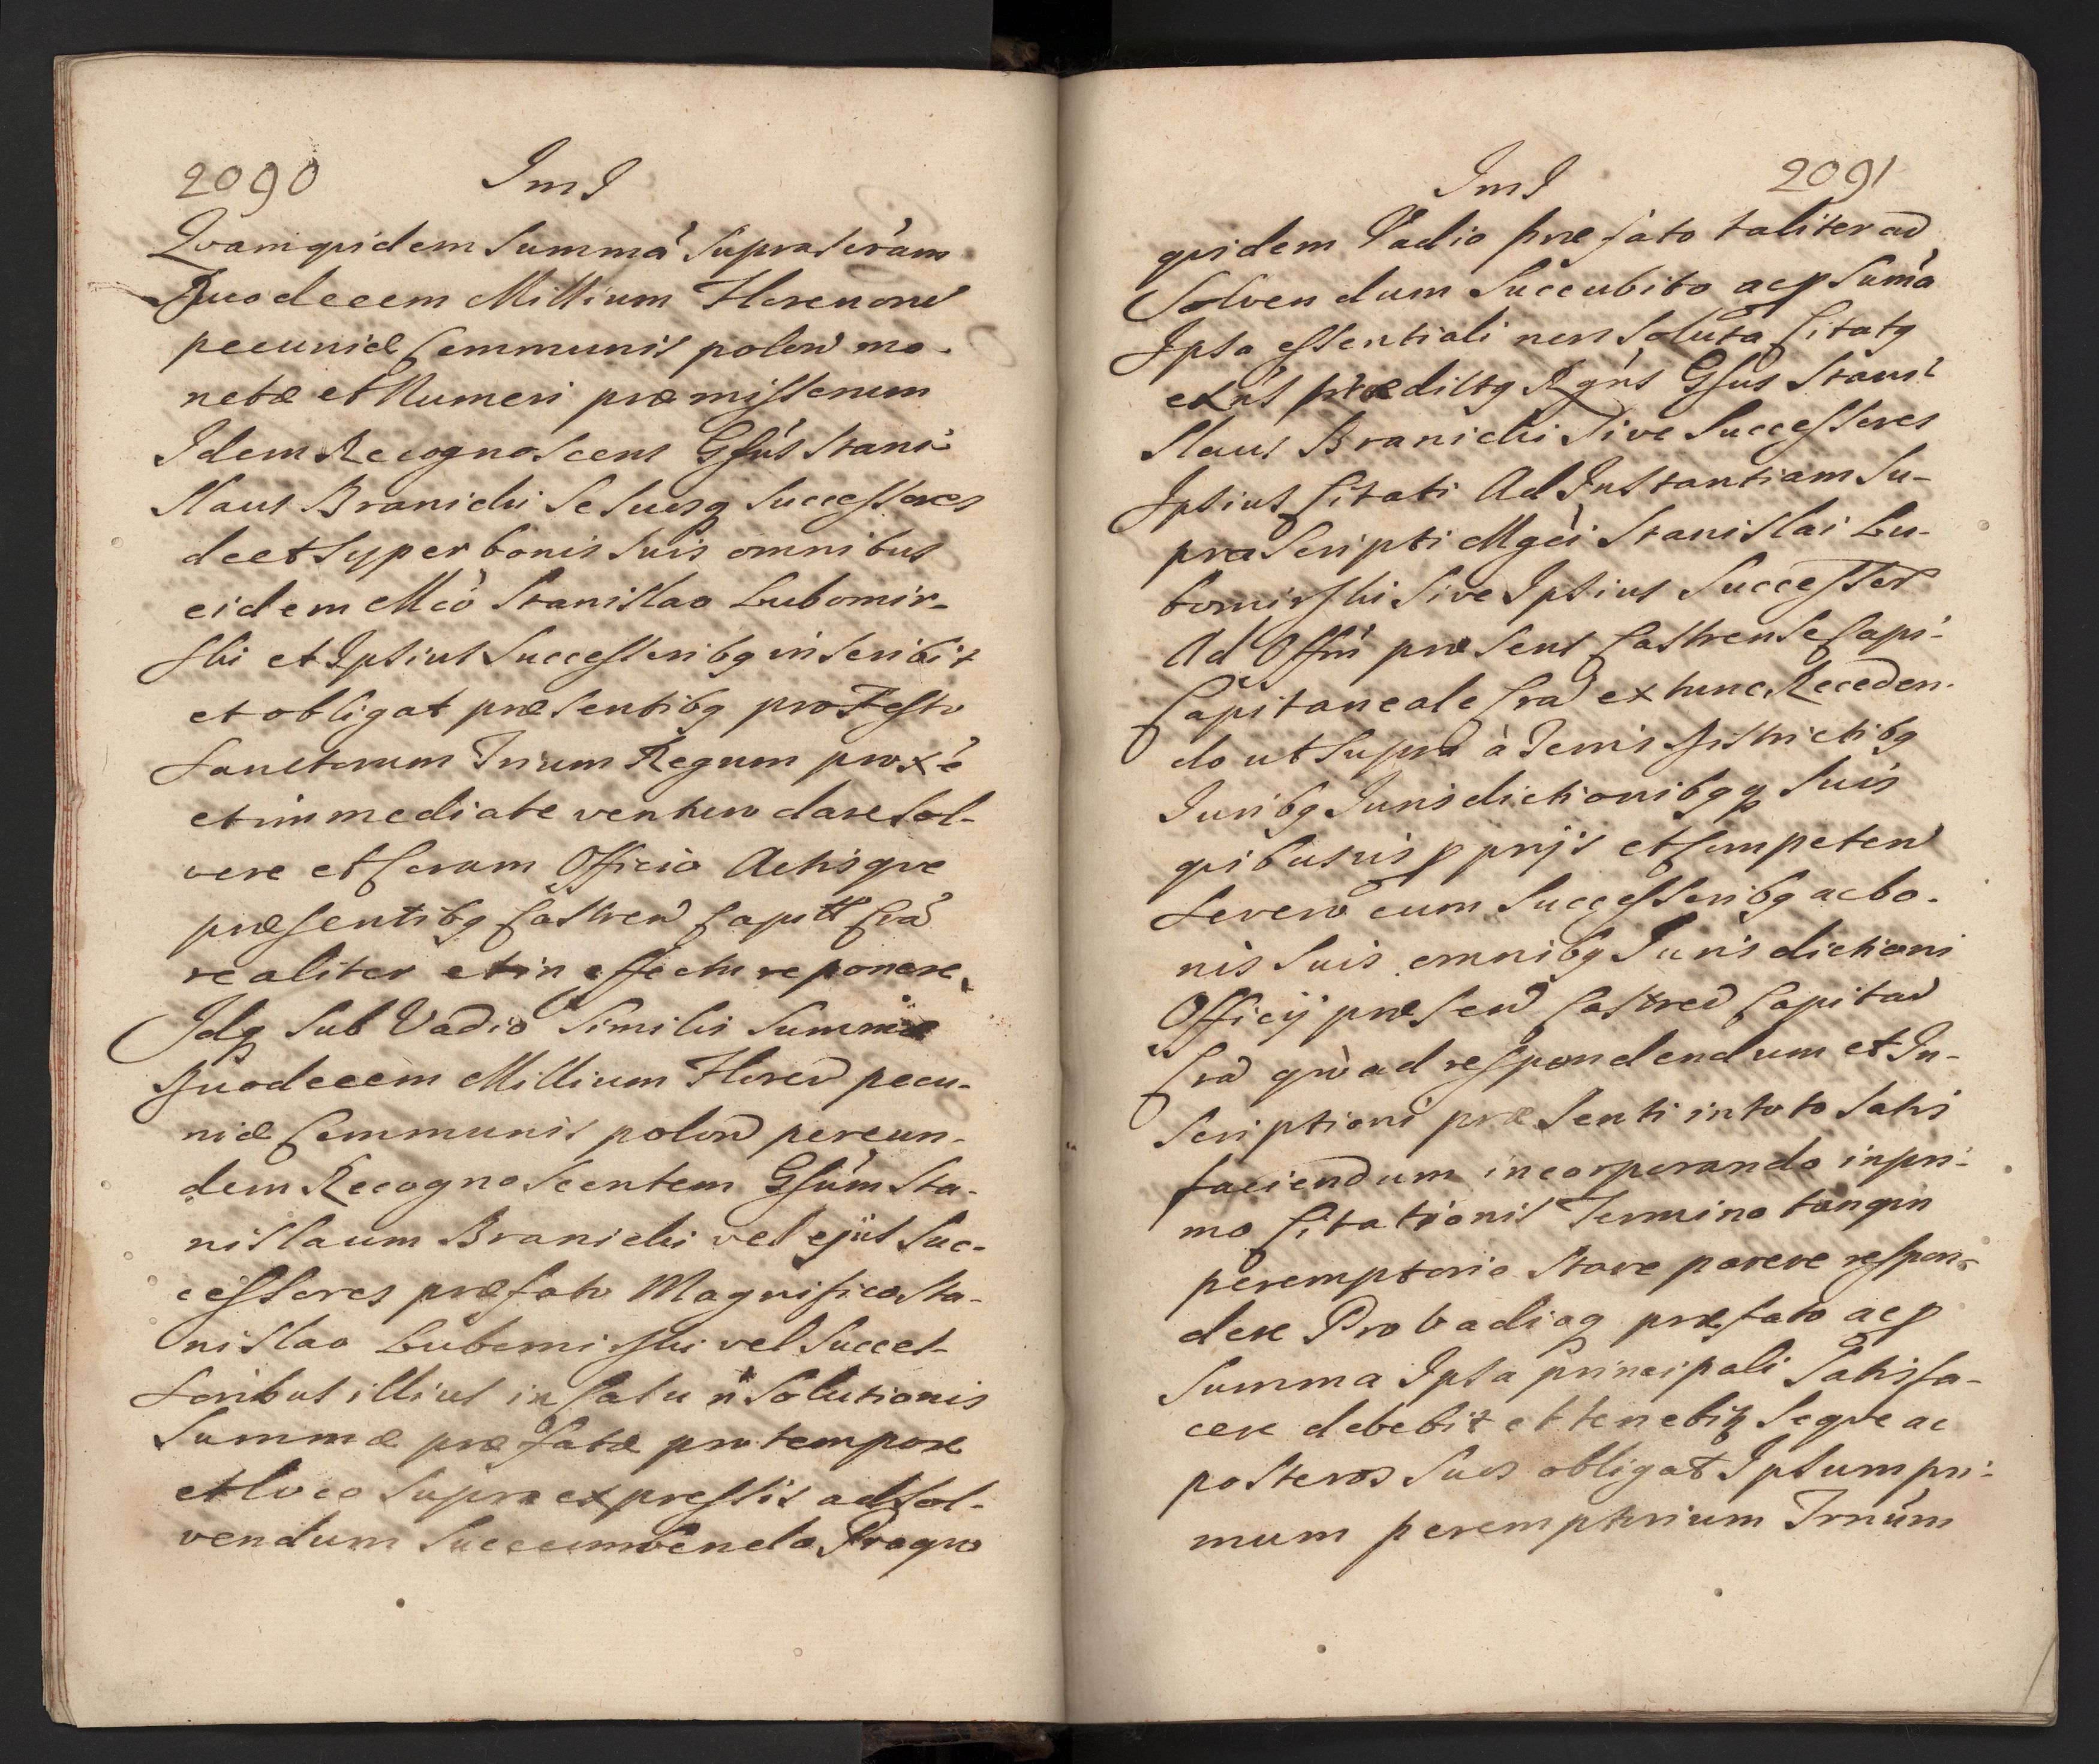 2090 ImI
Qvamqvidem Summá Suprascrám
Duodecem Millium Florenord
pecuniæ Communis polond mo-
netæ et Numeri præmissorum
Idem Recognoscens Gsús Stani-
slaus Branicki Se Suosq Successores
de et Super bonis Suis omnibus
eidem Mcó Stanislao Lubomir-
ski et Ipsius Successoribq inscribit
et obligat præsentibq pro Festo
Sanctorum Trium Regum proxe
et immediate venturo dare sol-
vere et Coram Officio Actisqve
præsentibq Castren Capitt Cra
realiter et in effectu reponere.
Idq Sub Vadio Similis Summæ
Duodecem Millium Flored pecu-
niæ Communis polond per eun-
dem Recognoscentem Gsúm Sta-
nislaum Branicki vel ejus Suc-
cessores præfato Magnifico Sta-
nislao Lubomirski vel Succes-
soribus illius in Casu ń Solutionis
Summæ præfatæ pro tempore
et loco Supra expressis ad Sol-
vendum Succumbendo Proqvo
ImI 2091
qvidem Vadio præfato taliter ad
Solvendum Succubito acp Suma
Ipsa essentiali non Soluta Citatq
exńs prædictq Rgńs Gsús Stani-
slaus Branicki Sive Successores
Ipsius Citati Ad Instantiam Su-
prascripti Mgci Stanislai Lu-
bomirski Sive Ipsius Successor
Ad Offm præsens Castrense Capi-
Capitaneale Cra ex tunc Receden-
do ut Supra à Terris Districtibq
Juribq Jurisdictionibqq Suis
qvibusvis pprijs et Competen
Severo cum Successoribq ac bo-
nis Suis omnibq Jurisdictioni
Officij præsen Castred Capitad
Cra qvò ad respondendum et In-
scriptioni præsenti in toto Satis
faciendum incorporando in pri-
mo Citationis Termino tanqm
peremptorio Stare parere respon-
dere Pro Vadioq præfato acp
Summa Ipsa principali Satisfa-
cere debebit et tenebit Seqve ac
posteros Suos obligat Ipsum pri-
mum peremptorium Trnúm